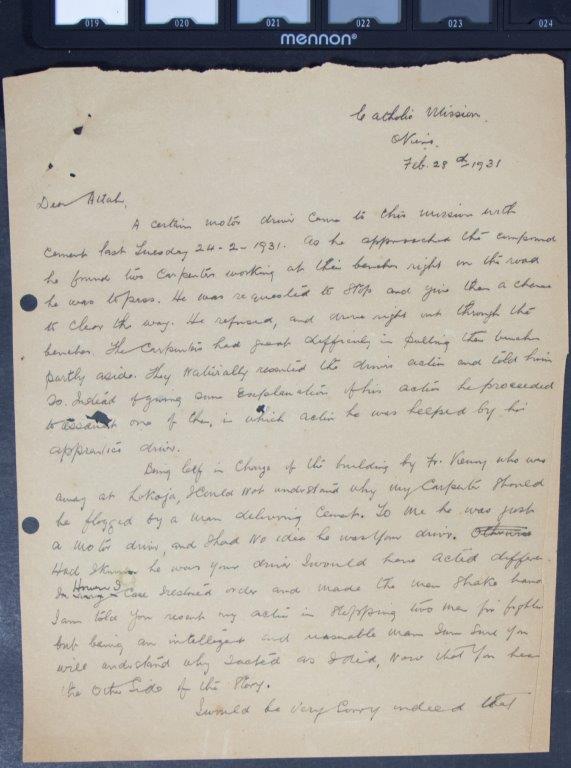 019 020 021 022 023 024
mennon®
Catholic Mission.
Feb. 28th 1931
Dear Attah,
A certain motor driver came to this mission with
cement last Tuesday 24-2-1931. As he approached the compound
he found two Carpenters working at their benches right on the road
he was to pass. He was requested to stop and give them a chance
to clear the way. He refused, and drove right out through the
benches. The Carpenters had great difficulty in putting their benches
partly aside. They Naturally resented the drivers action and told him
so. Instead of giving some Explanation of his action he proceeded
to assault one of them, in which action he was helped by his
apprentice driver.
Being left in Charge of the building by Fr. Vienny who was
away at Lokoja, I Could Not understand why my Carpenter should
be flogged by a man delivering Cement. To me he was just
a motor driver, and I had No idea he was your driver. Otherwise
Had I known he was your driver I would have acted differen
In any Case I restored order and made the men shake hand
However I
I am told You resent my action in stopping two men from fighting
but being an intelligent and reasonable man I am Sure You
will understand why I acted as I did, Now that You hear
the Other Side of the Story.
I would be Very Sorry indeed that